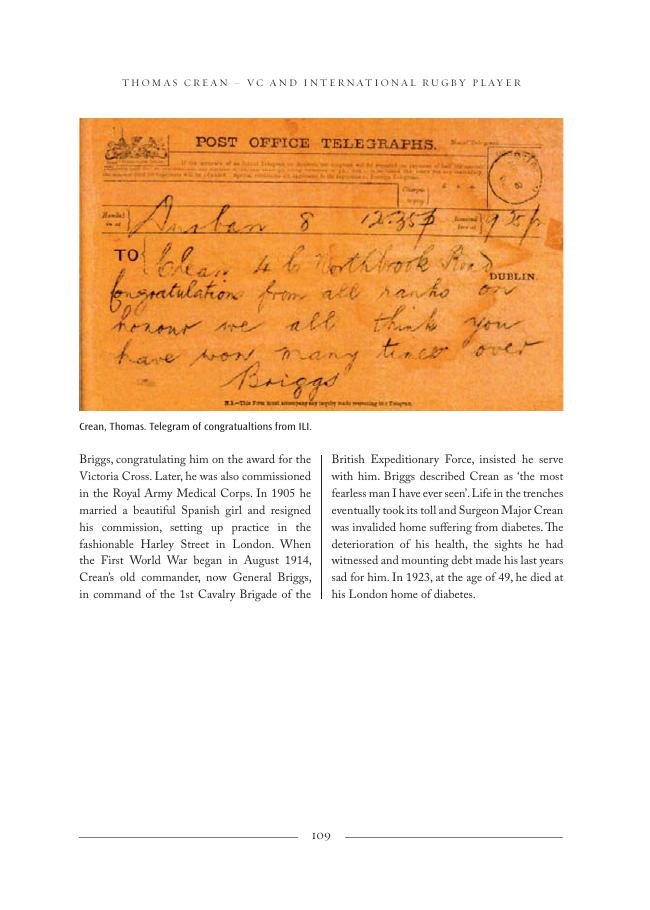 THOMAS CREAN – VC AND INTERNATIONAL RUGBY PLAYER
POST OFFICE TELEGRAPHS.
Handed in at
8 12.35p
Received here at 9 25 p
TO
Crean 4 Northbrook Road
DUBLIN.
Congratulations from all ranks on
honour we all think you
have won many times over
Briggs
N.B.—This Form must accompany any inquiry made respecting this Telegram.
Crean, Thomas. Telegram of congratualtions from ILI.
Briggs, congratulating him on the award for the
Victoria Cross. Later, he was also commissioned
in the Royal Army Medical Corps. In 1905 he
married a beautiful Spanish girl and resigned
his commission, setting up practice in the
fashionable Harley Street in London. When
the First World War began in August 1914,
Crean's old commander, now General Briggs,
in command of the 1st Cavalry Brigade of the
British Expeditionary Force, insisted he serve
with him. Briggs described Crean as 'the most
fearless man I have ever seen'. Life in the trenches
eventually took its toll and Surgeon Major Crean
was invalided home suffering from diabetes. The
deterioration of his health, the sights he had
witnessed and mounting debt made his last years
sad for him. In 1923, at the age of 49, he died at
his London home of diabetes.
109